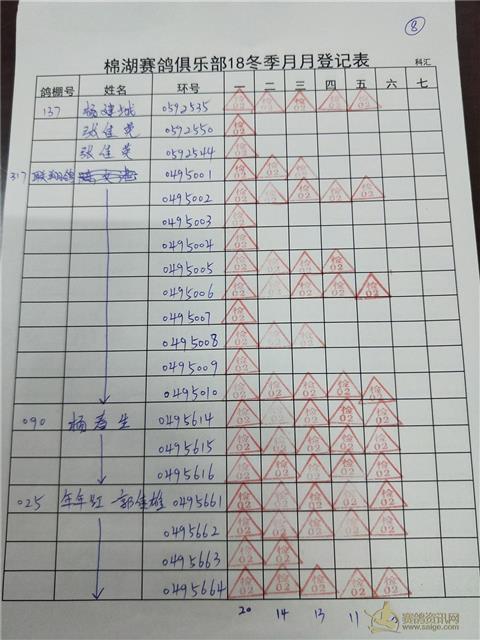 ⑧
棉湖赛鸽俱乐部18冬季月月登记表 科汇
鸽棚号 姓名 环号 一 二 三 四 五 六 七
137 杨建城 0592535 检02 检02 检02 检02 检02
张佳荧 0592550 检02
张佳荧 0592544 检02
317 联翔鸽 0495001 检02 检02 检02
0495002 检02 检02 检02 检02 检02
0495003 检02
0495004 检02
0495005 检02 检02 检02 检02
0495006 检02 检02 检02 检02 检02
0495007 检02
0495008 检02 检02 检02
0495009 检02
0495010 检02 检02 检02 检02 检02
090 杨春生 0495614 检02 检02 检02 检02 检02
0495615 检02 检02 检02 检02 检02
0495616 检02 检02 检02 检02 检02
025 年年红 郭佳雄 0495661 检02 检02 检02 检02 检02
0495662 检02 检02 检02 检02 检02
0495663 检02 检02
0495664 检02 检02 检02 检02 检02
20 14 13 11
赛鸽资讯网
www.saige.com